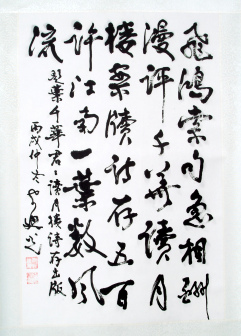 飛鴻索句急相酬
漫評千華讀月
樓案牘詩存五百
許江南一葉數風
流
羽葉千華君之讀月樓詩存出版
丙戌仲冬